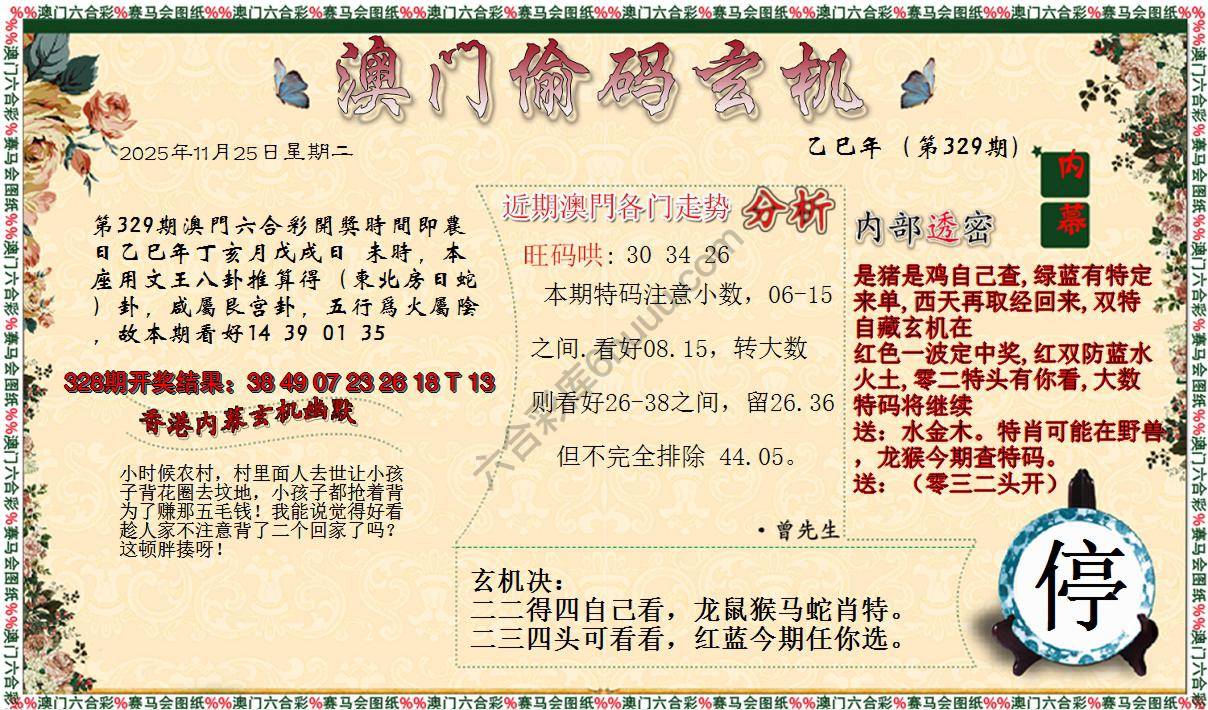 %%澳门六合彩%赛马会图纸%%澳门六合彩%赛马会图纸%%澳门六合彩%赛马会图纸%%澳门六合彩%赛马会图纸%%澳门六合彩%赛马会图纸%%澳门六合彩%赛马会图纸%%
澳门偷码玄机
2025年11月25日星期二
乙巳年（第329期）
内幕
第329期澳門六合彩開獎時間即農
日乙巳年丁亥月戊戌日 未時，本
座用文王八卦推算得（東北房日蛇
）卦，咸屬艮宫卦，五行爲火屬陰
，故本期看好14 39 01 35
328期开奖结果：38 49 07 23 26 18 T 13
香港内幕玄机幽默
小时候农村，村里面人去世让小孩
子背花圈去坟地，小孩子都抢着背
为了赚那五毛钱！我能说觉得好看
趁人家不注意背了二个回家了吗？
这顿胖揍呀！
近期澳門各门走势 分析
旺码哄: 30 34 26
本期特码注意小数，06-15
之间.看好08.15，转大数
则看好26-38之间，留26.36
但不完全排除 44.05。
·曾先生
内部透密
是猪是鸡自己查,绿蓝有特定
来单,西天再取经回来,双特
自藏玄机在
红色一波定中奖,红双防蓝水
火土,零二特头有你看,大数
特码将继续
送：水金木。特肖可能在野兽
，龙猴今期查特码。
送：（零三二头开）
玄机决：
二二得四自己看，龙鼠猴马蛇肖特。
二三四头可看看，红蓝今期任你选。
停